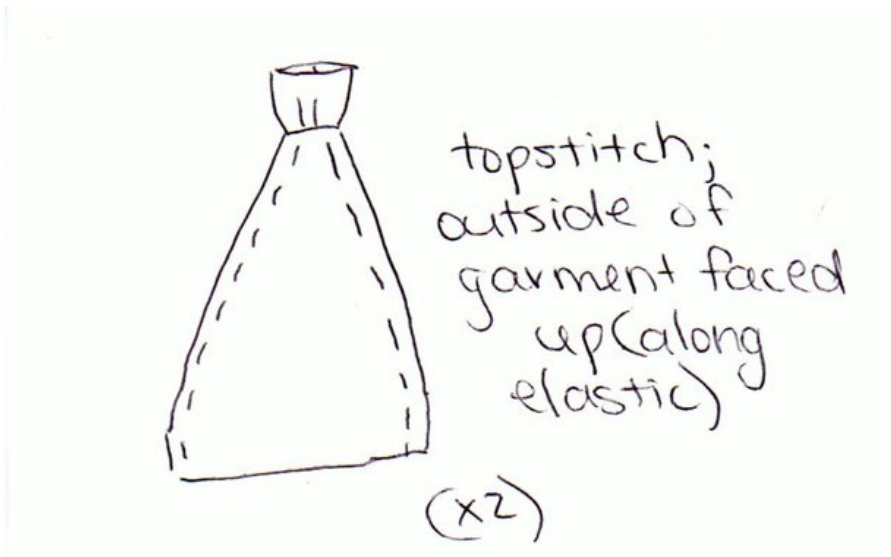 topstitch;
outside of
garment faced
up(along
elastic)
(x2)